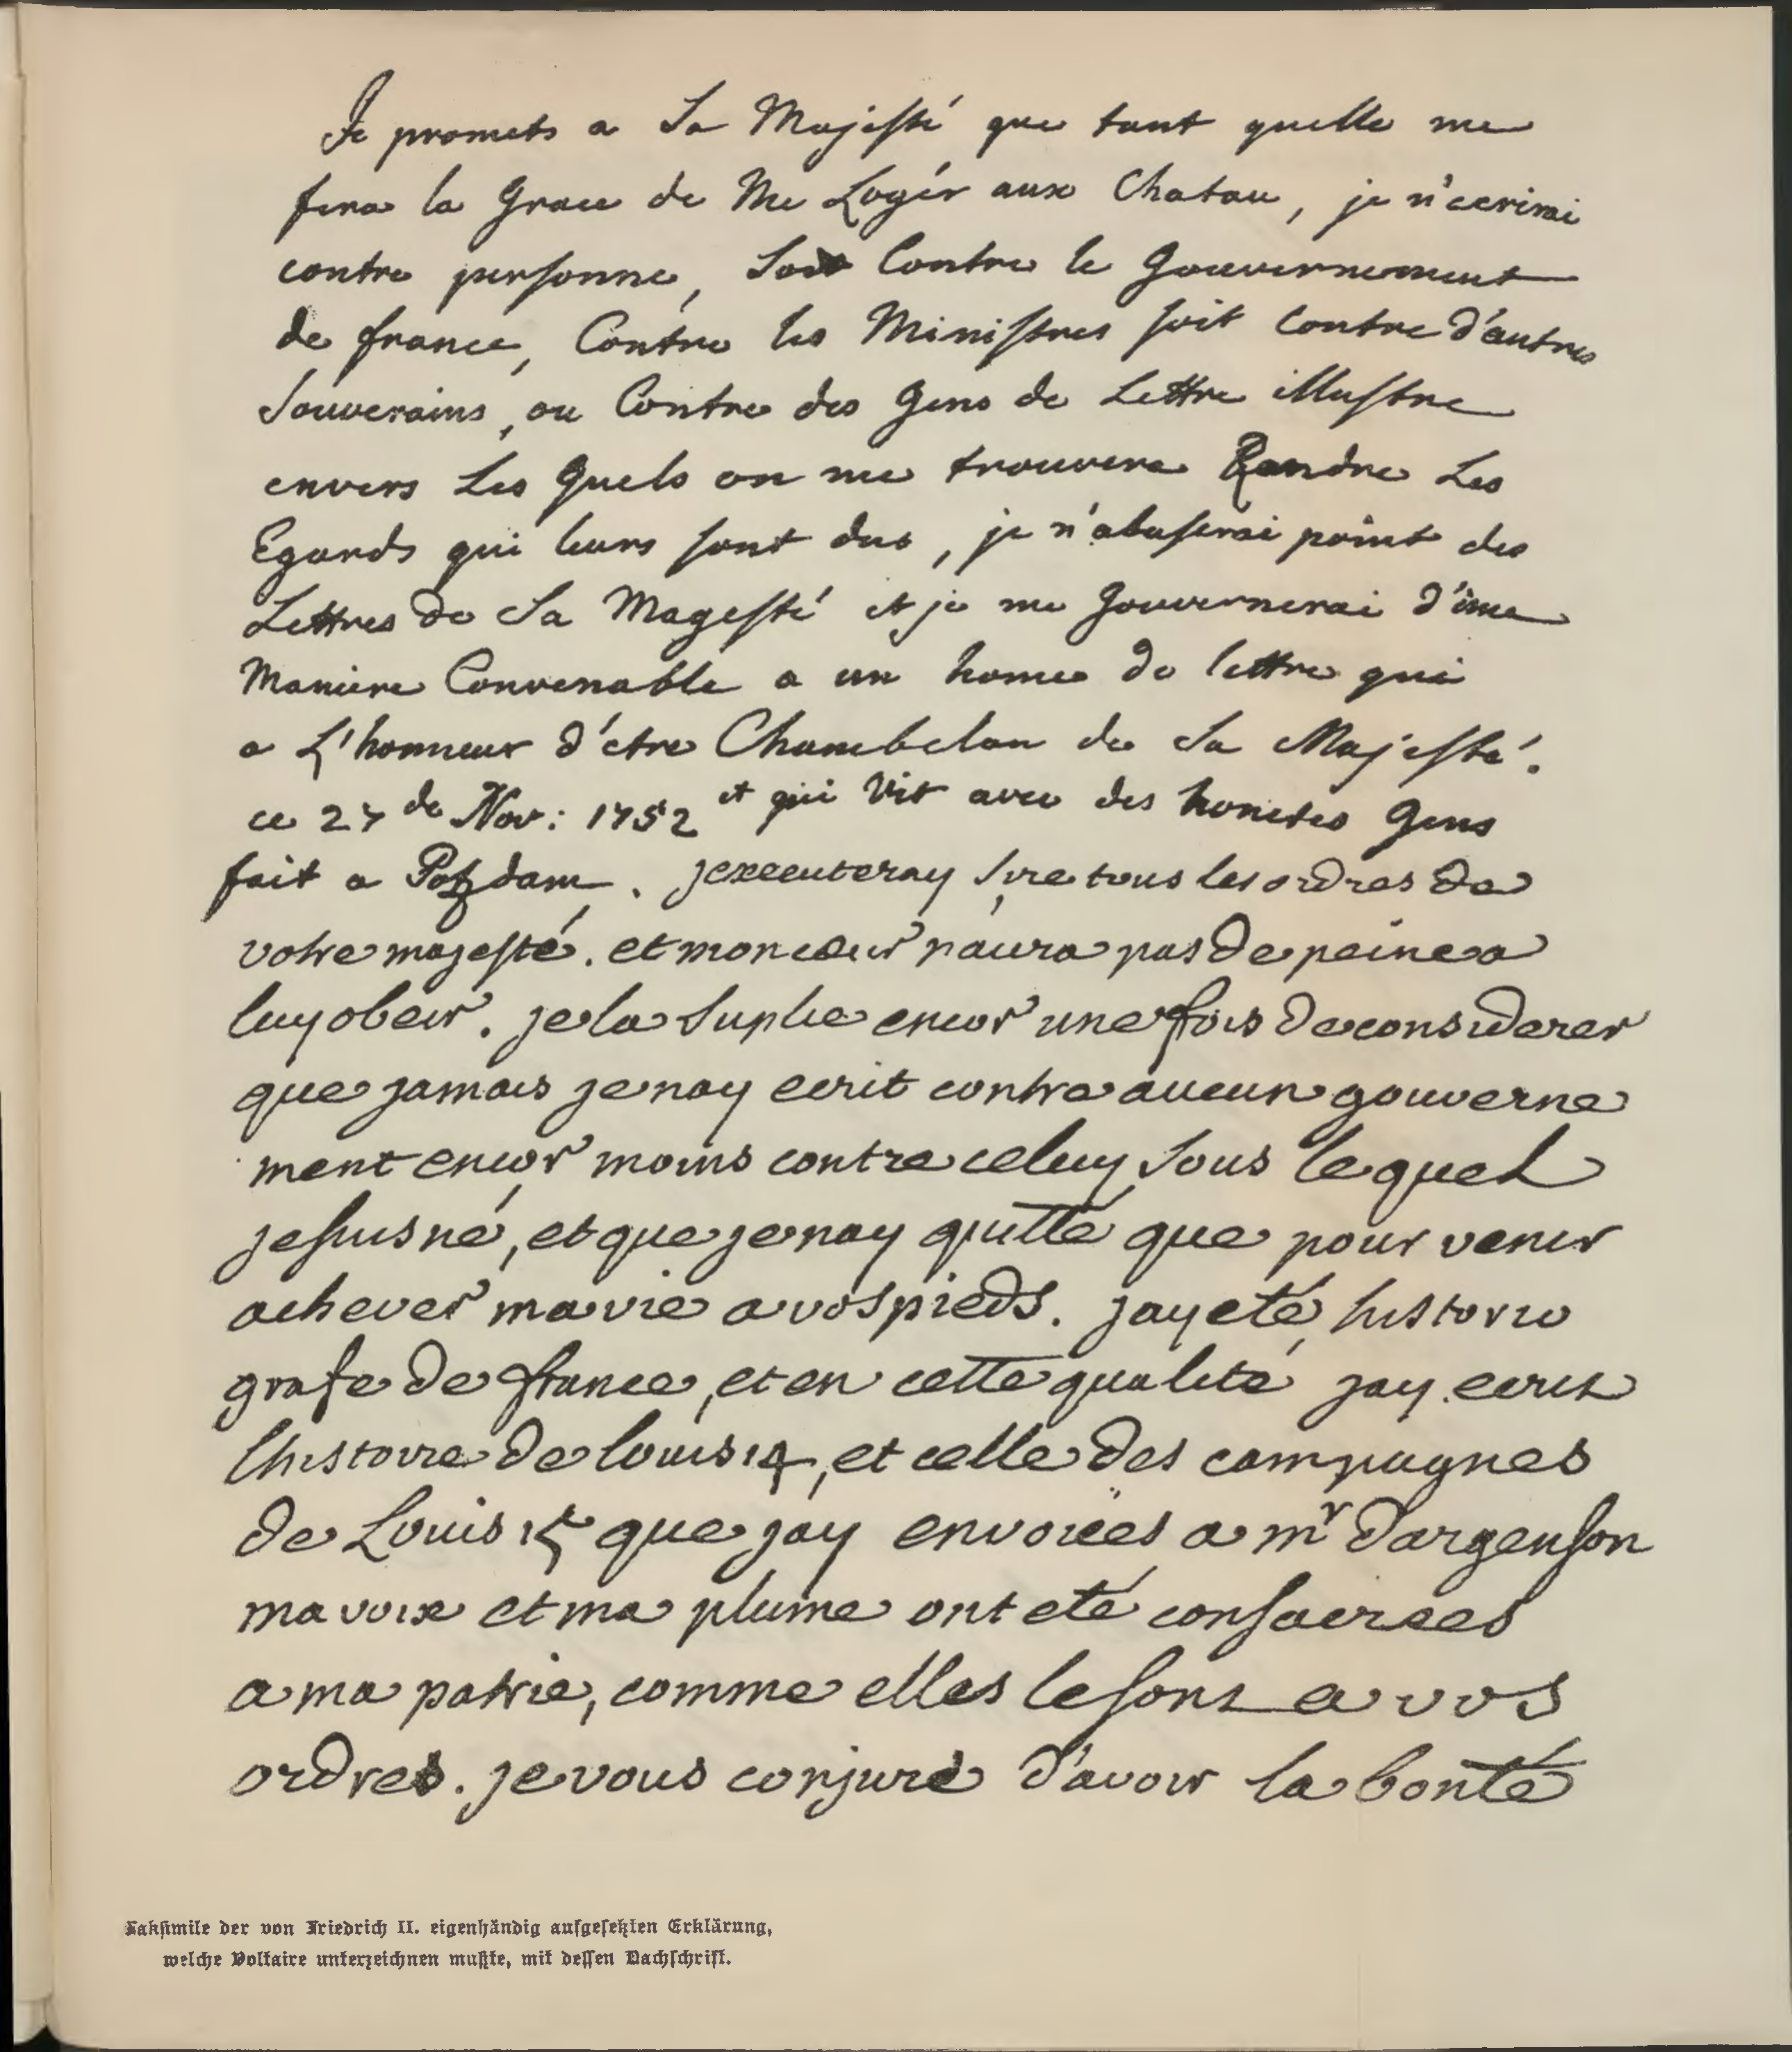 Je promets a Sa Majesté que tant quelle me
fera la Grace de Me Logér aux Chatau, je n'ecrirai
contre personne, Soit Contre le Gouvernement
de france, Contre les Ministres soit Contre d'autres
Souverains, ou Contre des Gens de Lettre illustre
envers Les Quels on me trouvera Randre Les
Egards qui leurs sont dus, je n'abuserai point des
Lettres de Sa Magesté et je me Gouvernerai d'une
Maniere Convenable a un home de lettre qui
a L'honneur d'etre Chambelan de Sa Majesté.
et qui Vit avec des honetes Gens
ce 27 de Nov: 1752
fait a Potzdam. jexecuteray Sire tous les ordres de
votre majesté. et mon cœur naura pas de peine a
luy obeir. je la Suplie encor une fois de considerer
que jamais je nay ecrit contre aucun gouverne
ment encor moins contre celuy Sous lequel
je suis né, et que je nay quitté que pour venir
achever ma vie a vos pieds. jay eté historio
grafe de france, et en cette qualité jay ecrit
lhistoire de louis 14, et celle des campagnes
de Louis 15 que jay envoiées a mr dargenson
ma voix et ma plume ont eté consacrees
a ma patrie, comme elles le sont a vos
ordres. je vous conjure d'avoir la bonté
Faksimile der von Friedrich II. eigenhändig aufgesetzten Erklärung,
welche Voltaire unterzeichnen mußte, mit dessen Nachschrift.